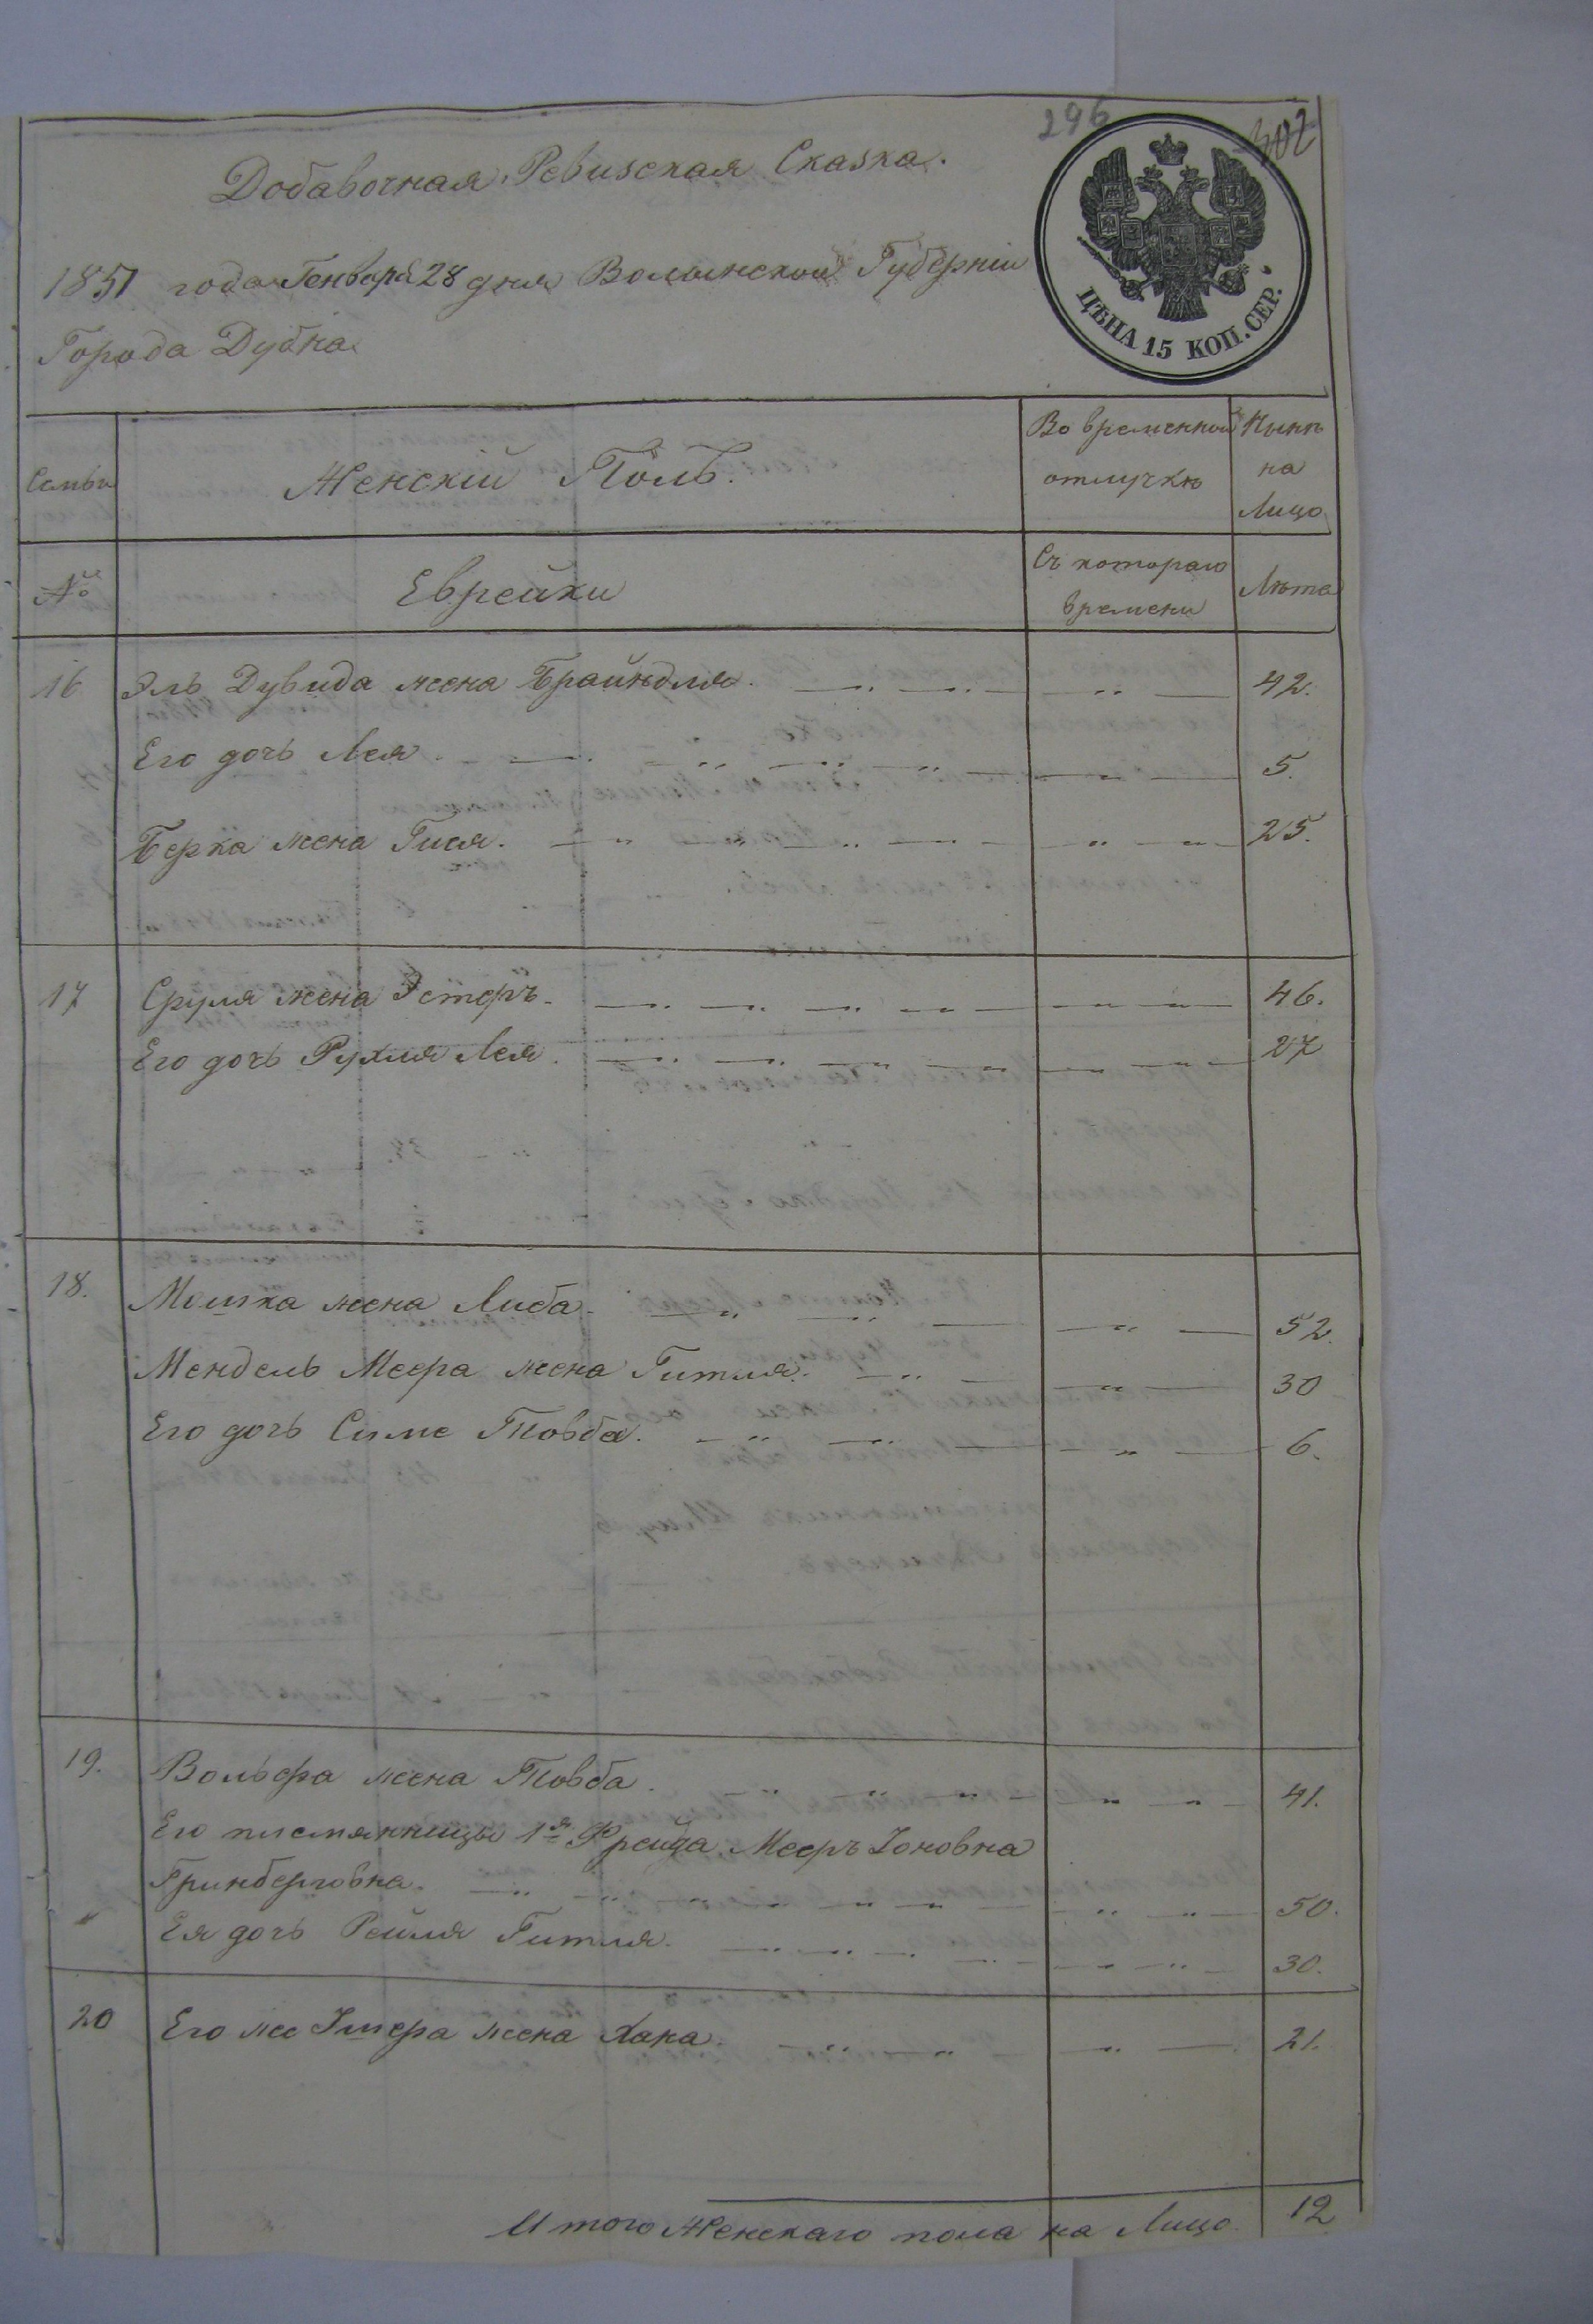 296
302
Добавочная Ревизская Сказка.
ЦѢНА 15 КОП. СЕР.
1851 года Генваря 28 дня Волынской Губерніи
Города Дубна
Семьи
Женскій Полъ.
Во временной отлучкѣ
Нынѣ на Лицо
№
Еврейки
Съ котораго времени
Лѣта
16 Эль Дувида жена Брайндля. 42.
Его дочь Лея. 5.
Берка жена Гися. 25.
17 Сруля жена Эстеръ. 46.
Его дочь Рухля Лея. 27
18. Мошка жена Либа. 52.
Мендель Меера жена Гитля. 30
Его дочь Симе Товба. 6.
19. Вольфа жена Товба. 41.
Его племянницы 1я Фрейда Мееръ Іоновна
Гринберговна. 50.
Ея дочь Рейля Гитля. 30.
20 Его же Ішера жена Хана. 21.
Итого Женскаго пола на Лицо 12